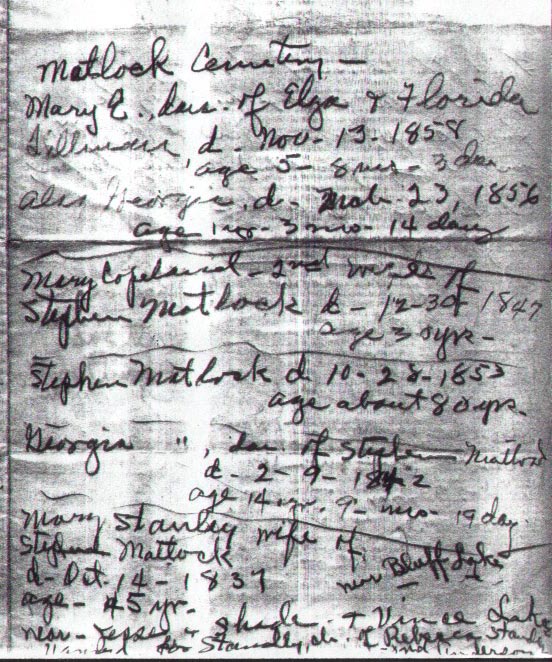 Matlock Cemetery -
Mary E., dau. of Elza & Florida
Sillman d. Nov- 13- 1858
age 5- 8 mo- 3 da
also Georgia, d- Mch- 23, 1856
age 1 yr- 3 mo- 14 days
Mary Copeland- 2nd wife of
Stephen Matlock d- 12-30- 1847
age 30 yr-
Stephen Matlock d 10-28-1853
age about 80 yr-
Georgia ", dau. of Stephen Matlock
d- 2- 9- 1842
age 14 yr. 9- mo- 19 day-
Mary Stanley wife of
Stephen Matlock
d- Oct- 14- 1837
near Bluff
age- 45 yr-
near- & Vance
Stanley, of Rebecca